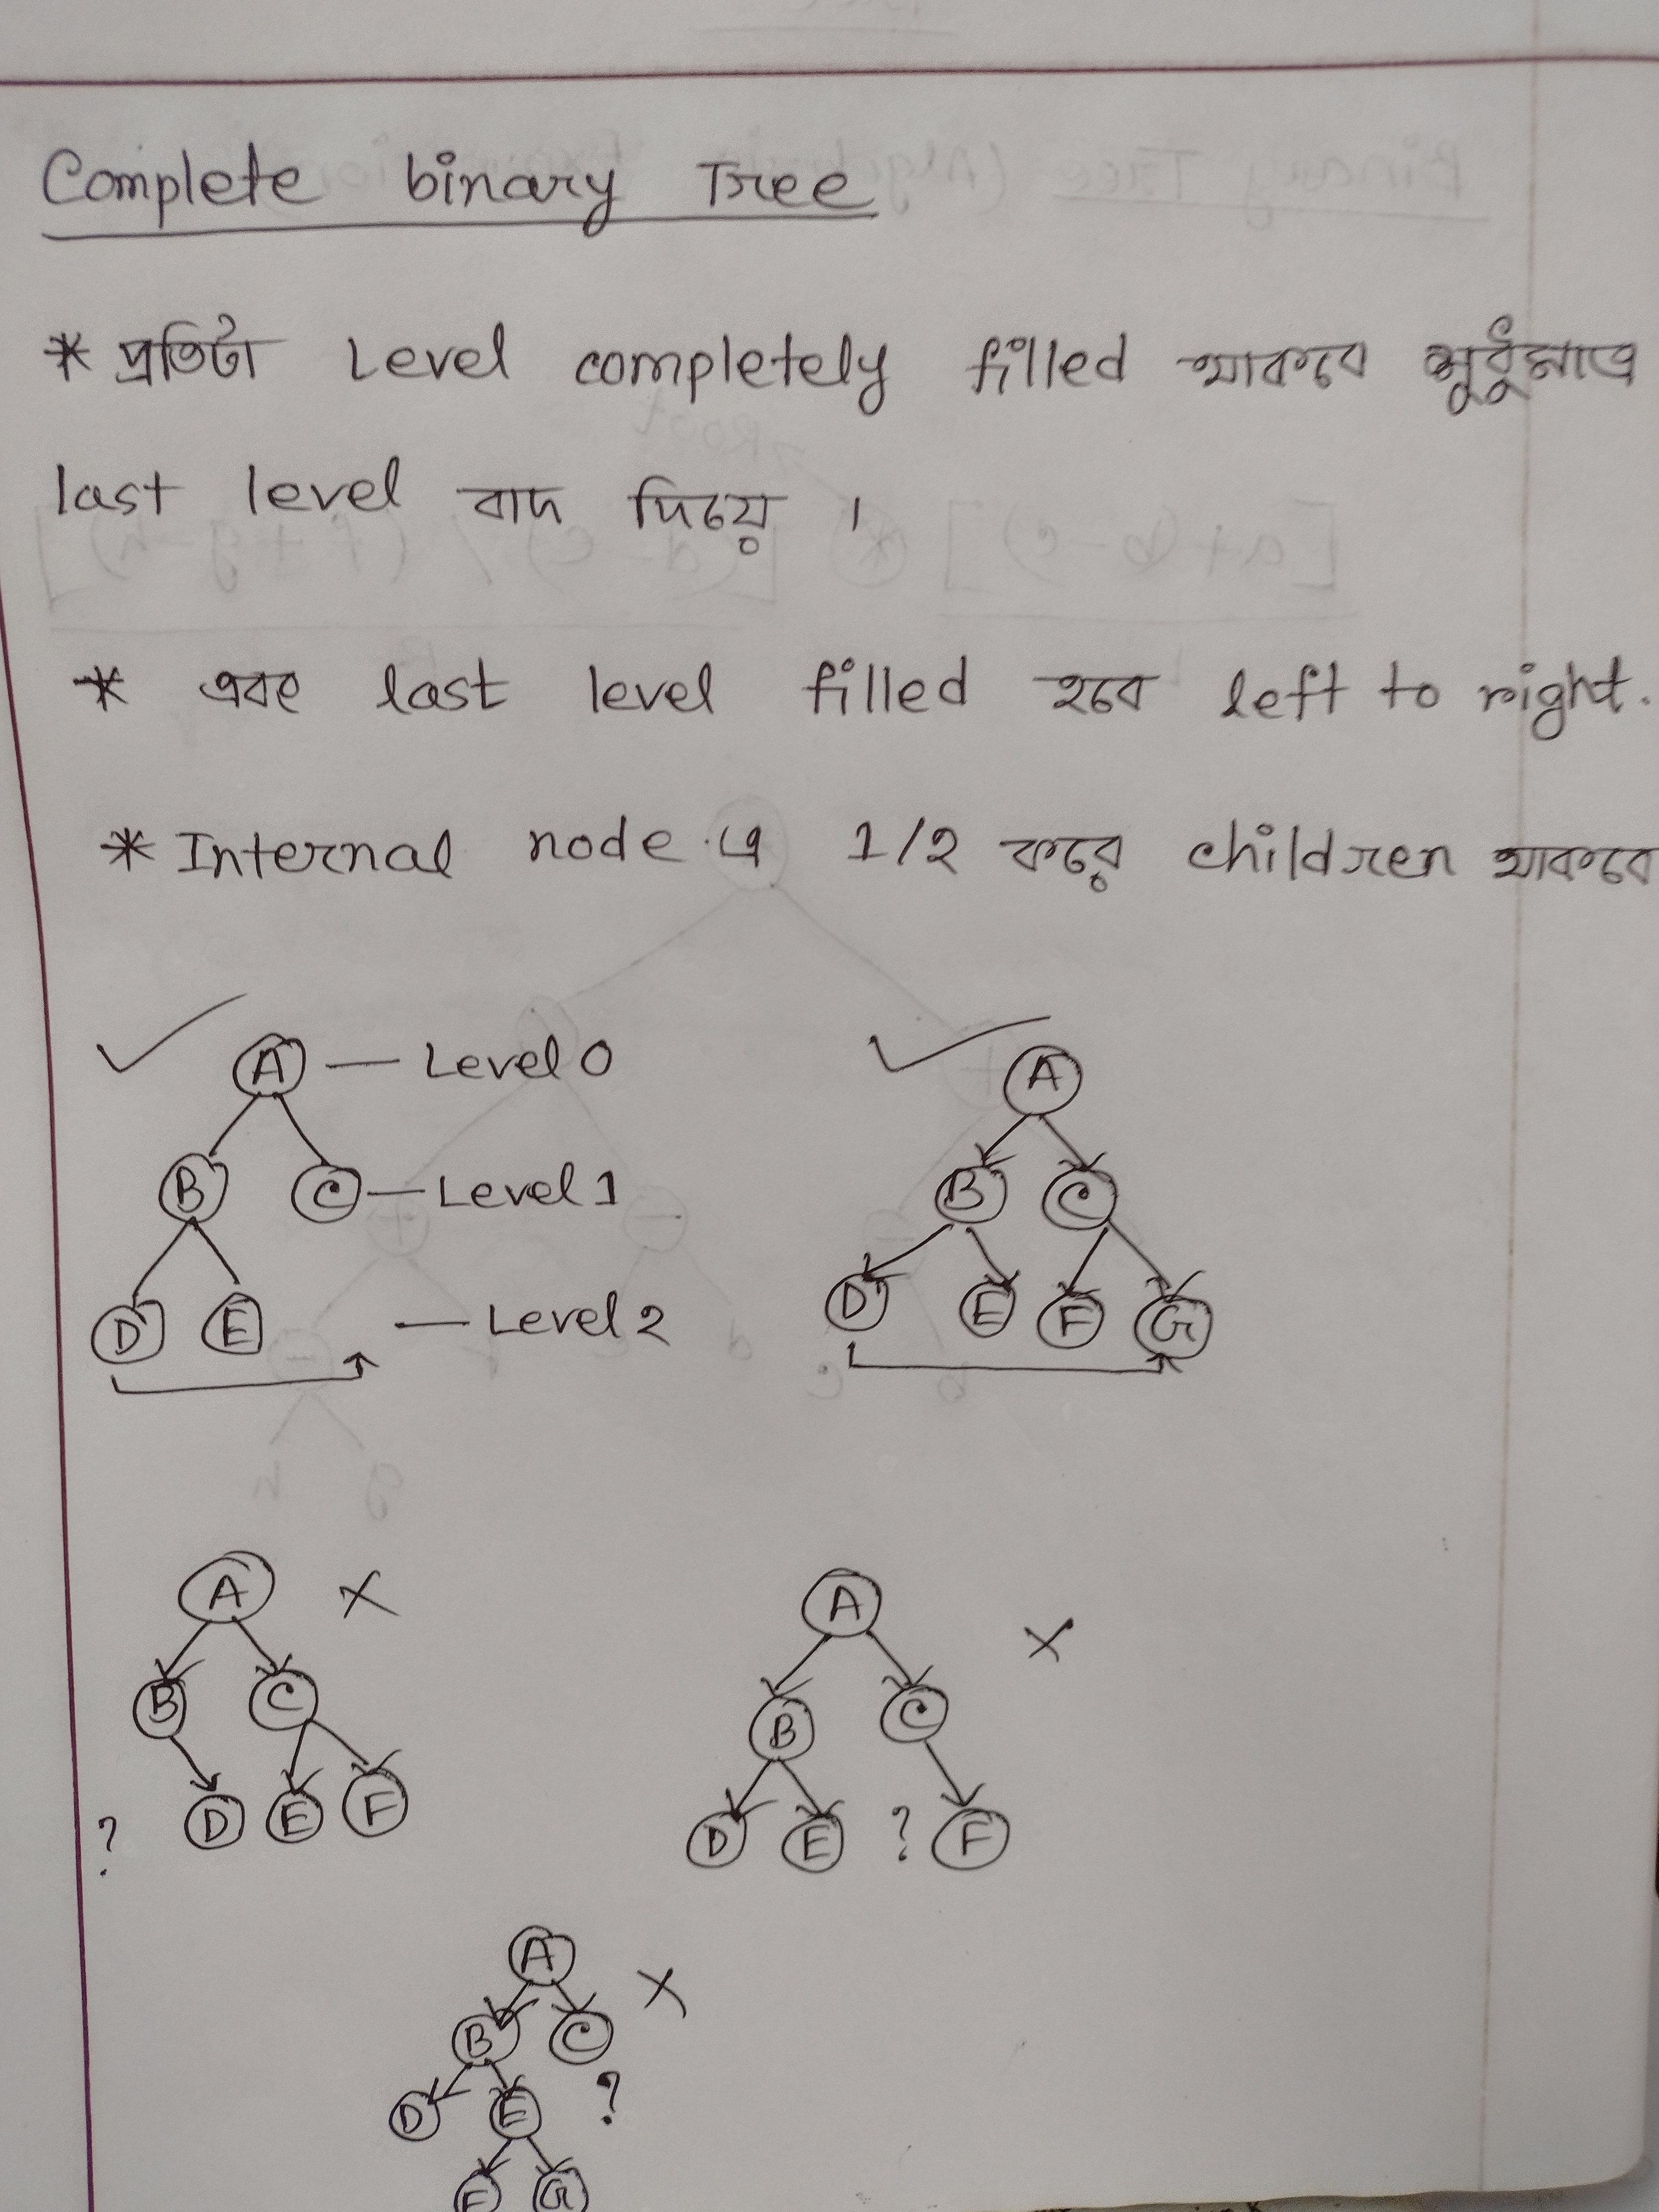 Complete binary Tree
* প্রতিটা Level completely filled থাকবে শুধুমাত্র
last level বাদ দিয়ে ।
* এবং last level filled হবে left to right.
* Internal node এ 1/2 করে children থাকবে
✓ A — Level 0 ✓ A
B C — Level 1 B C
D E — Level 2 D E F G
A X A X
B C B C
? D E F D E ? F
A X
B C
D E ?
F G